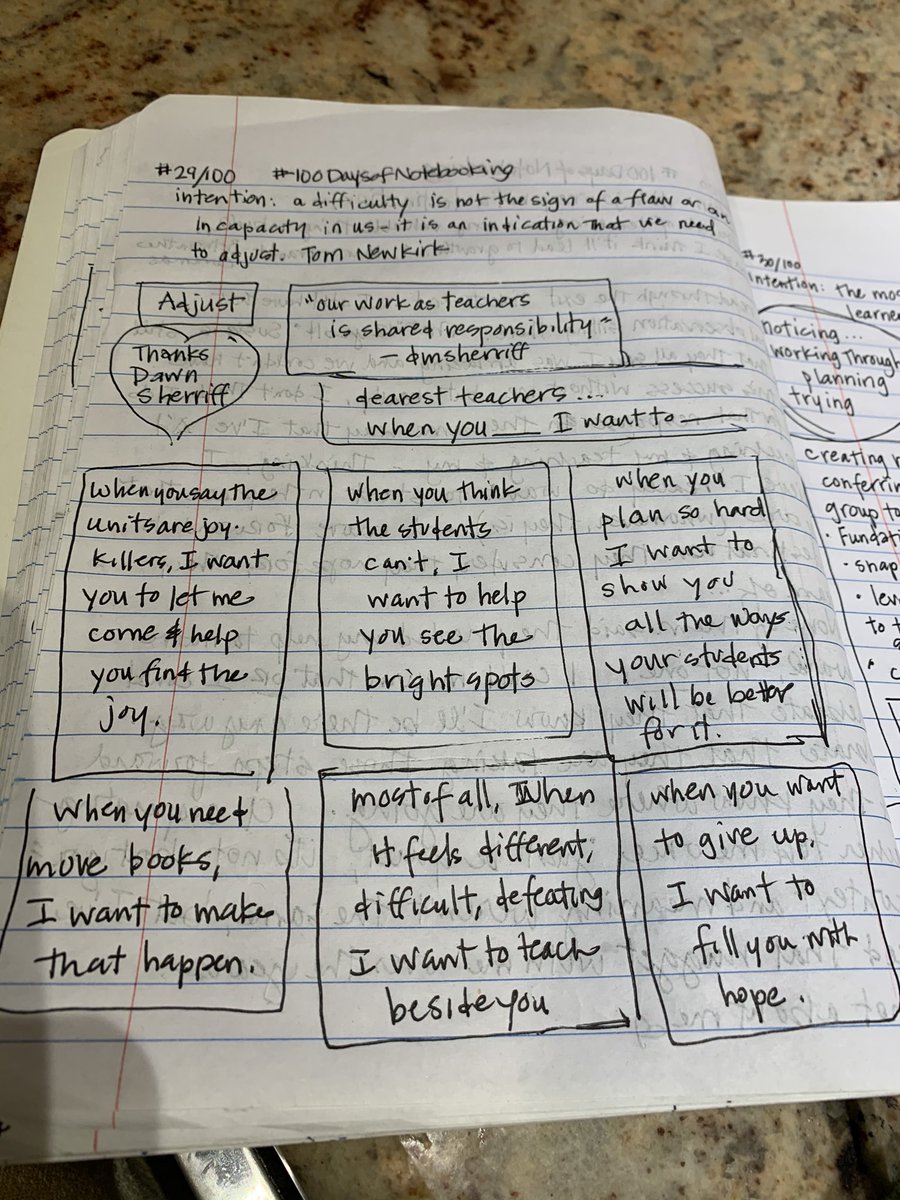 #29/100 #100DaysofNotebooking
intention: a difficulty is not the sign of a flaw or an
incapacity in us - it is an indication that we need
to adjust. Tom Newkirk
Adjust
Thanks
Dawn
Sherriff
"our work as teachers
is shared responsibility"
- dmsherriff
dearest teachers ...
when you ___ I want to ___
When you say the
units are joy
killers, I want
you to let me
come & help
you find the
joy.
when you think
the students
can't, I
want to help
you see the
bright spots
when you
plan so hard
I want to
show you
all the ways
your students
will be better
for it.
When you need
more books,
I want to make
that happen.
most of all, When
it feels different,
difficult, defeating
I want to teach
beside you
when you want
to give up,
I want to
fill you with
hope.
#30/100
intention: the mos
learne
noticing...
working through
planning
trying
creating
conferrin
group to
• Fundati
• snap
• lev
to t